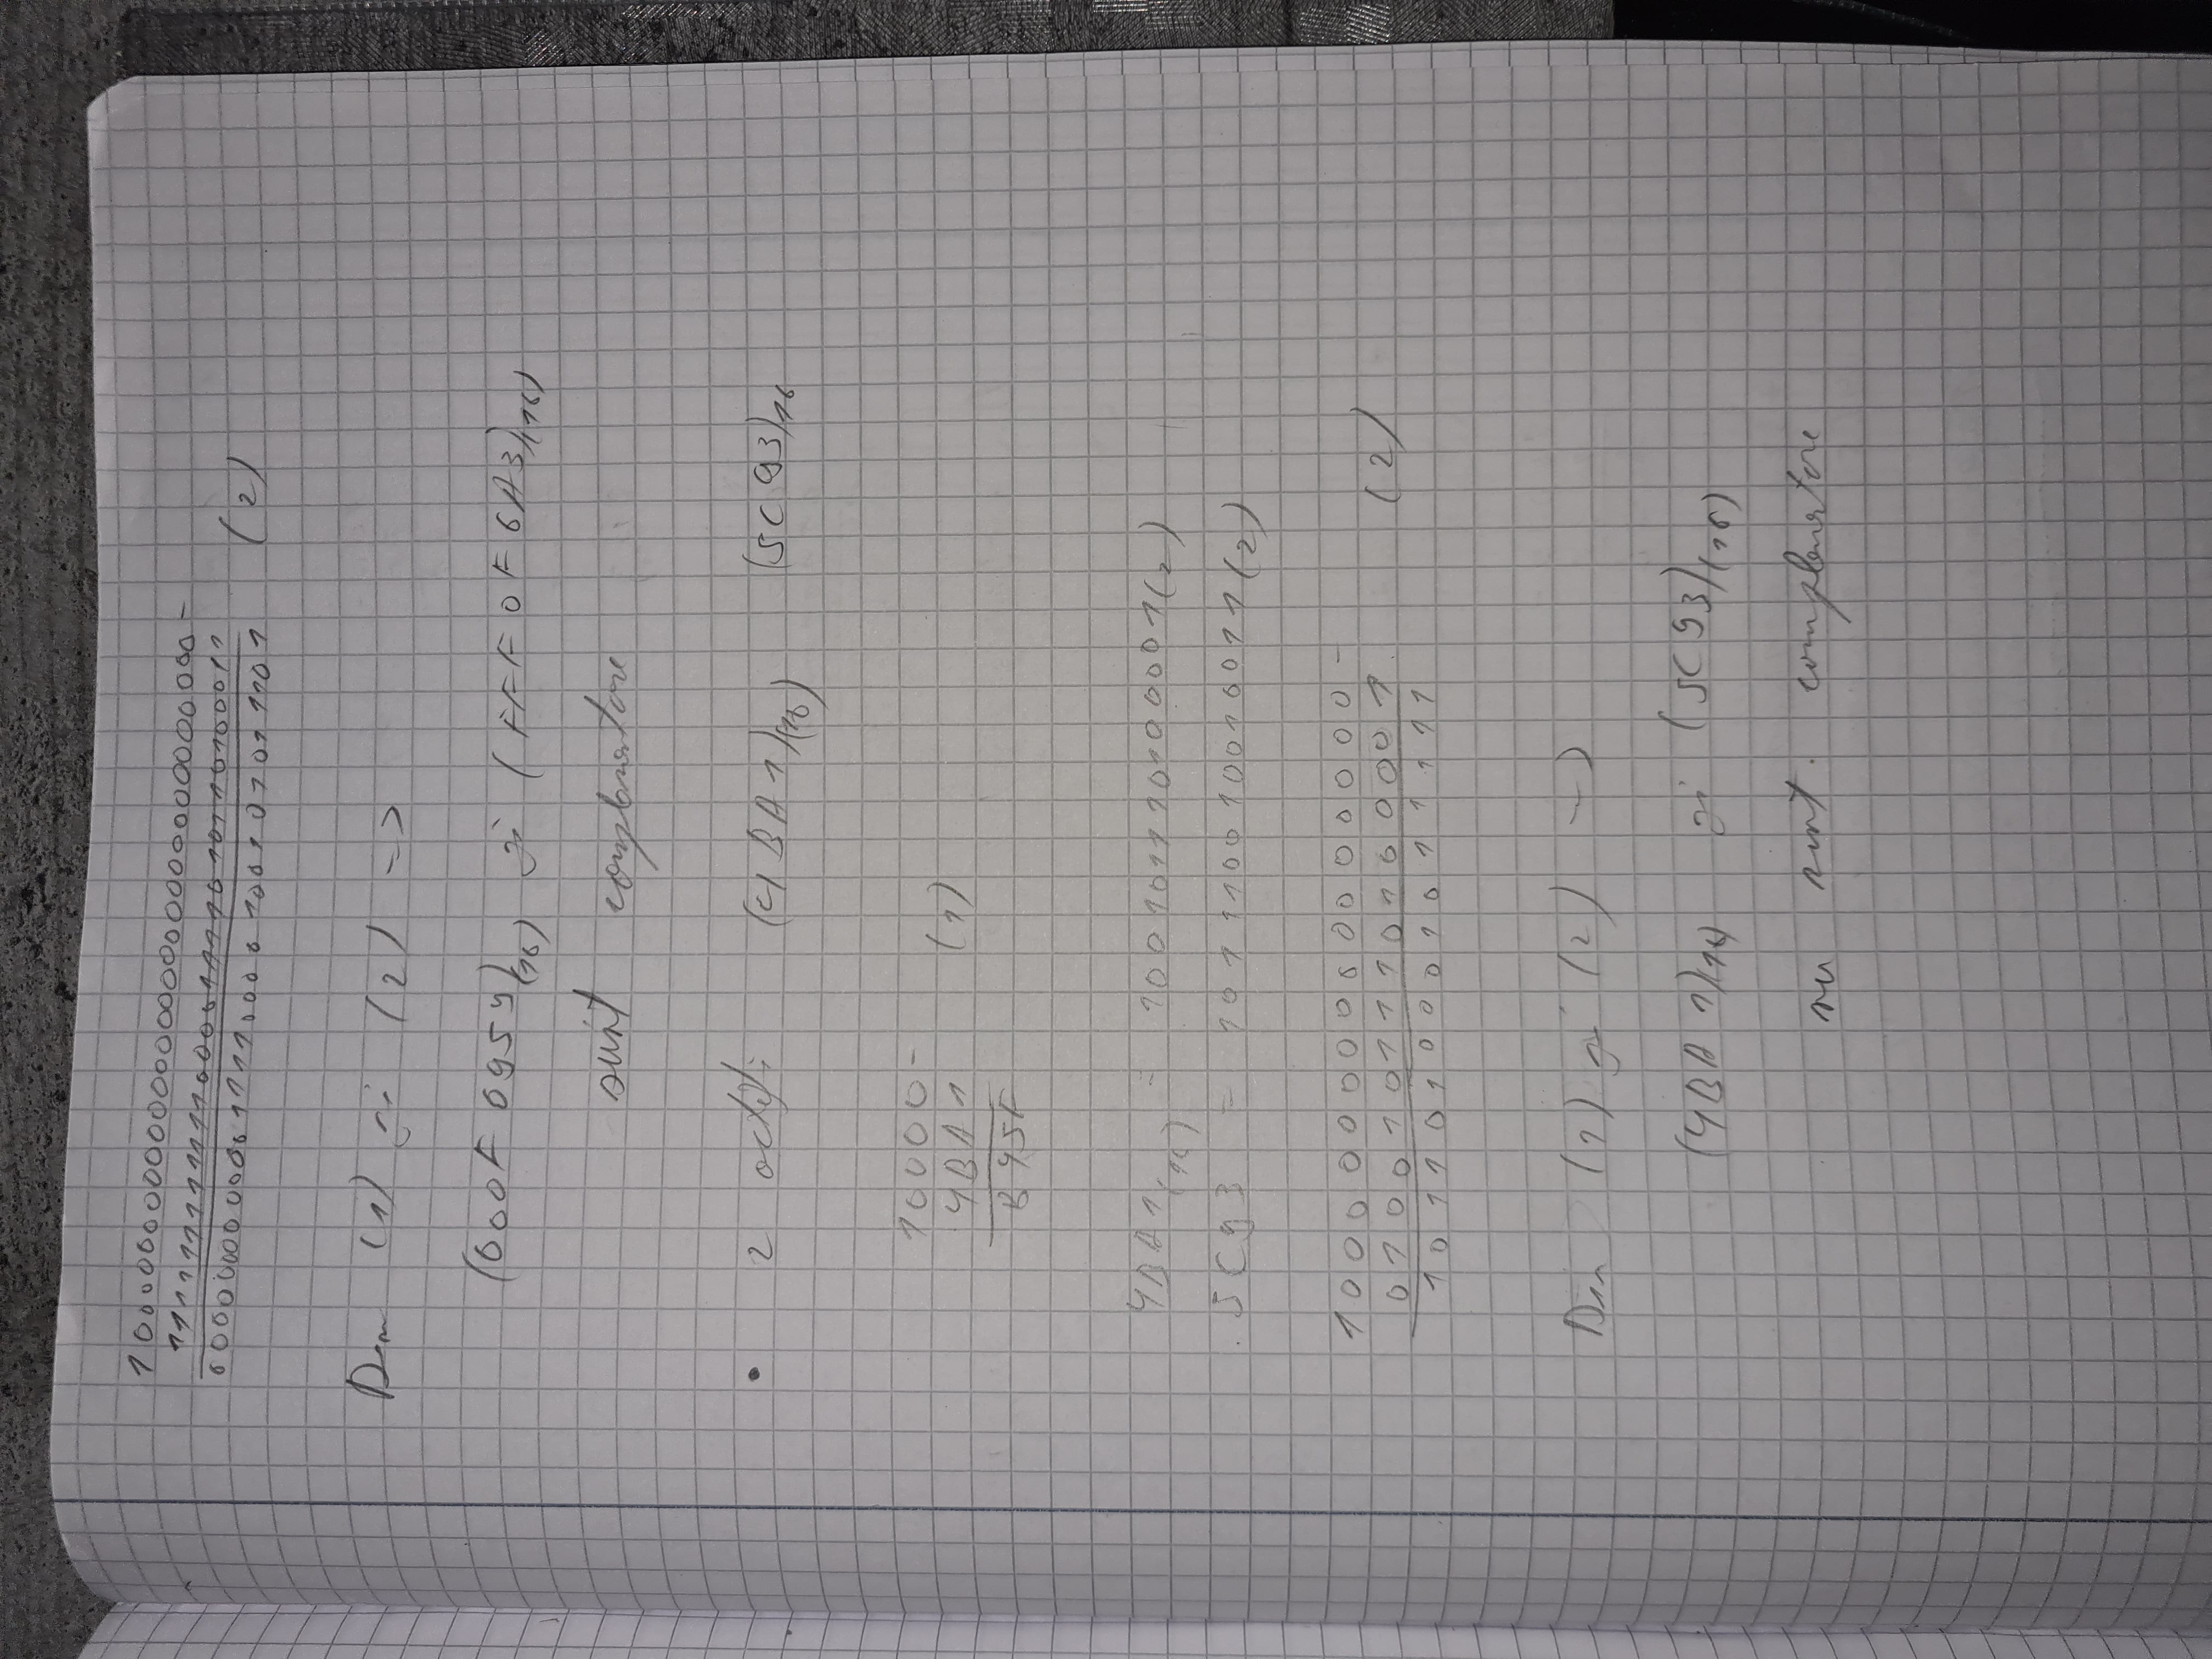 100000000000000000000000000000000 -
11111111111100001111011010100011
00000000000011110000100101011101 (2)
Din (1) și (2) =>
(000F 0959)(16) și (FFF0F6A3)(16)
sunt complementare
• 2 octeți (4BA1)(16) (5C93)16
10000 -
4BA1 (1)
B45F
4BA1(16) = 100101110100001(2)
5C93 = 101110010010011(2)
10000000000000000 -
0100101110100001 (2)
1011010001011111
Din (1) și (2) =>
(4BA1)(16) și (5C93)(16)
nu sunt complementare